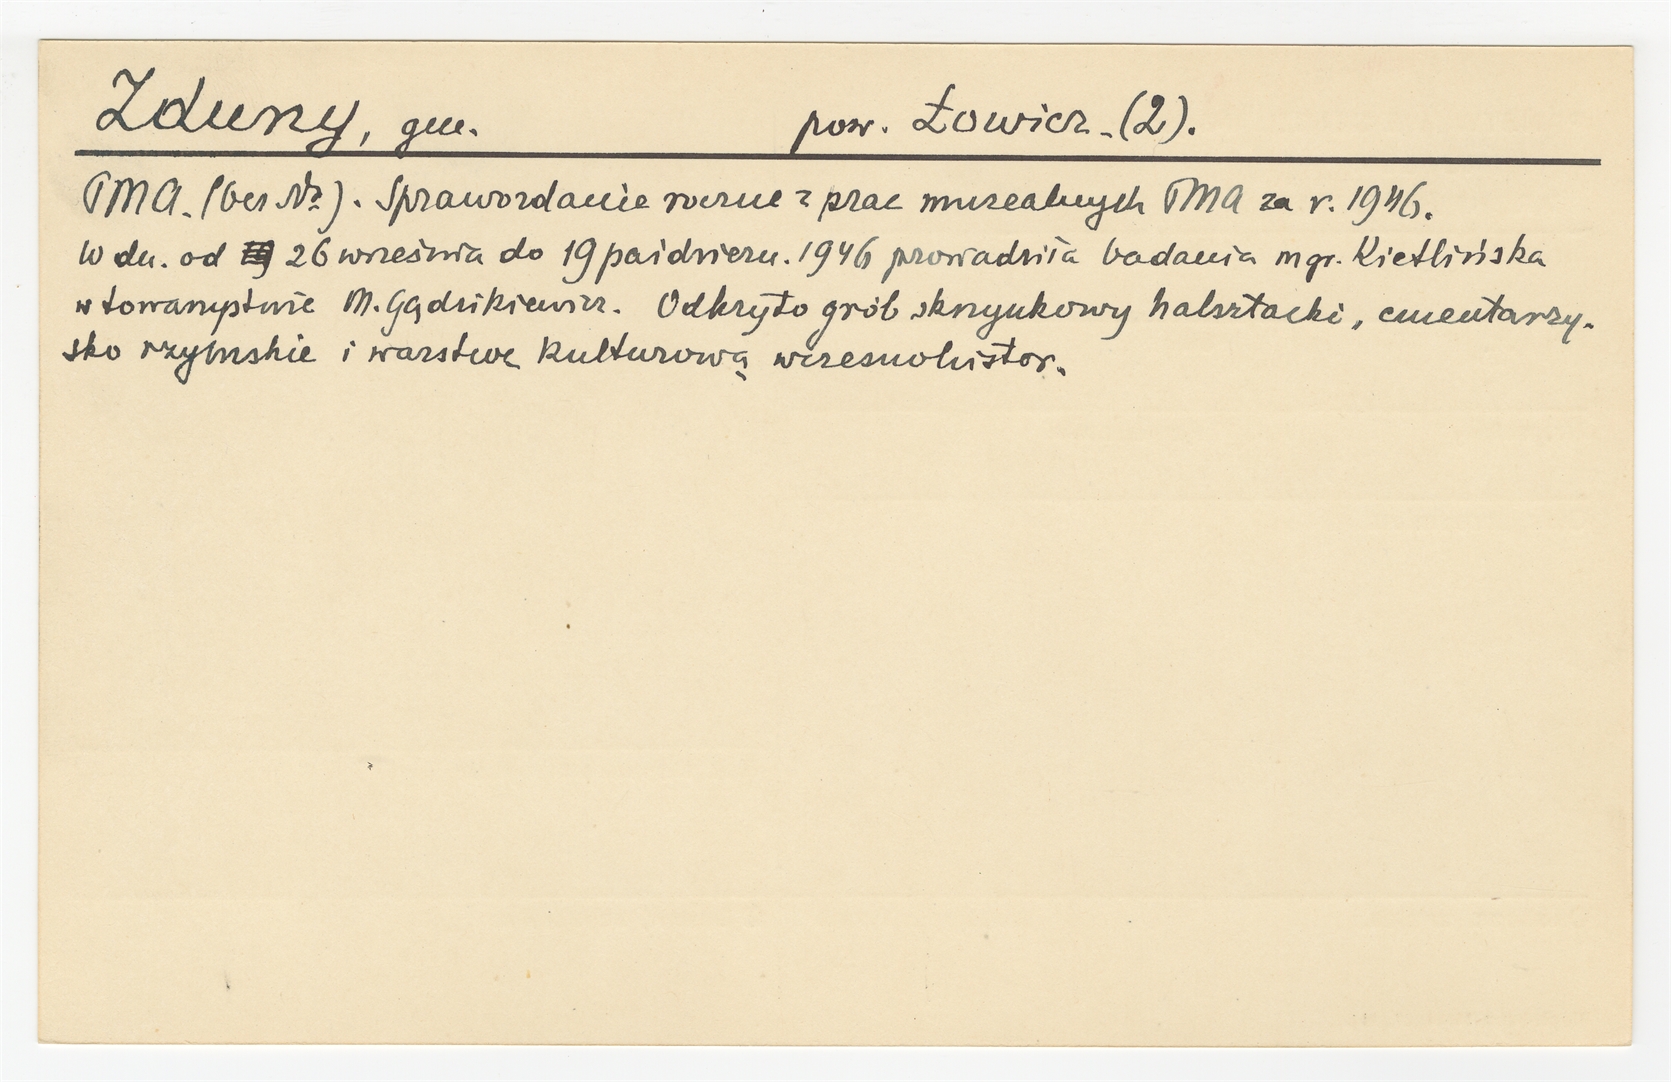 Zduny, gm. pow. Łowicz. (2).
PMA. (bez Nr). Sprawozdanie roczne z prac muzealnych PMA za r. 1946.
W dn. od 26 września do 19 październ. 1946 prowadziła badania mgr. Kietlińska
w towarzystwie M. Gądzikiewicz. Odkryto grób skrzynkowy halsztacki, cmentarzy-
sko rzymskie i warstwę kulturową wczesnohistor.